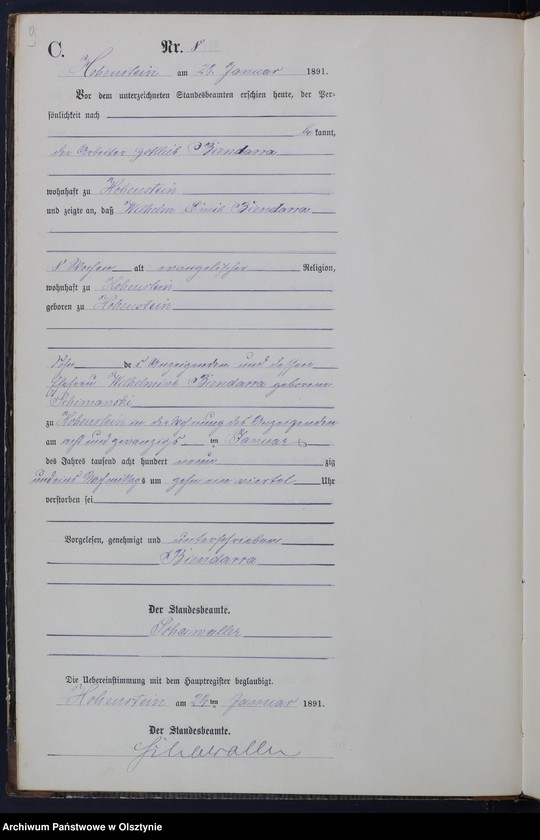 9
C.
Nr. 8
Hohenstein am 28. Januar 1891.
Vor dem unterzeichneten Standesbeamten erschien heute, der Per-
sönlichkeit nach
be kannt,
der Arbeiter Gottlieb Biendarra
wohnhaft zu Hohenstein
und zeigte an, daß Wilhelm Emil Biendarra
8 Wochen alt evangelischer Religion,
wohnhaft zu Hohenstein
geboren zu Hohenstein
Sohn des Anzeigenden und dessen
Ehefrau Wilhelmine Biendarra geborene
Schimanski
zu Hohenstein in der Wohnung des Anzeigenden
am acht und zwanzigs ten Januar
des Jahres tausend acht hundert neun zig
und eins Vormittags um zehn ein viertel Uhr
verstorben sei
Vorgelesen, genehmigt und unterschrieben
Biendarra
Der Standesbeamte.
Schawaller
Die Uebereinstimmung mit dem Hauptregister beglaubigt.
Hohenstein am 28 ten Januar 1891.
Der Standesbeamte.
Schawaller
Archiwum Państwowe w Olsztynie